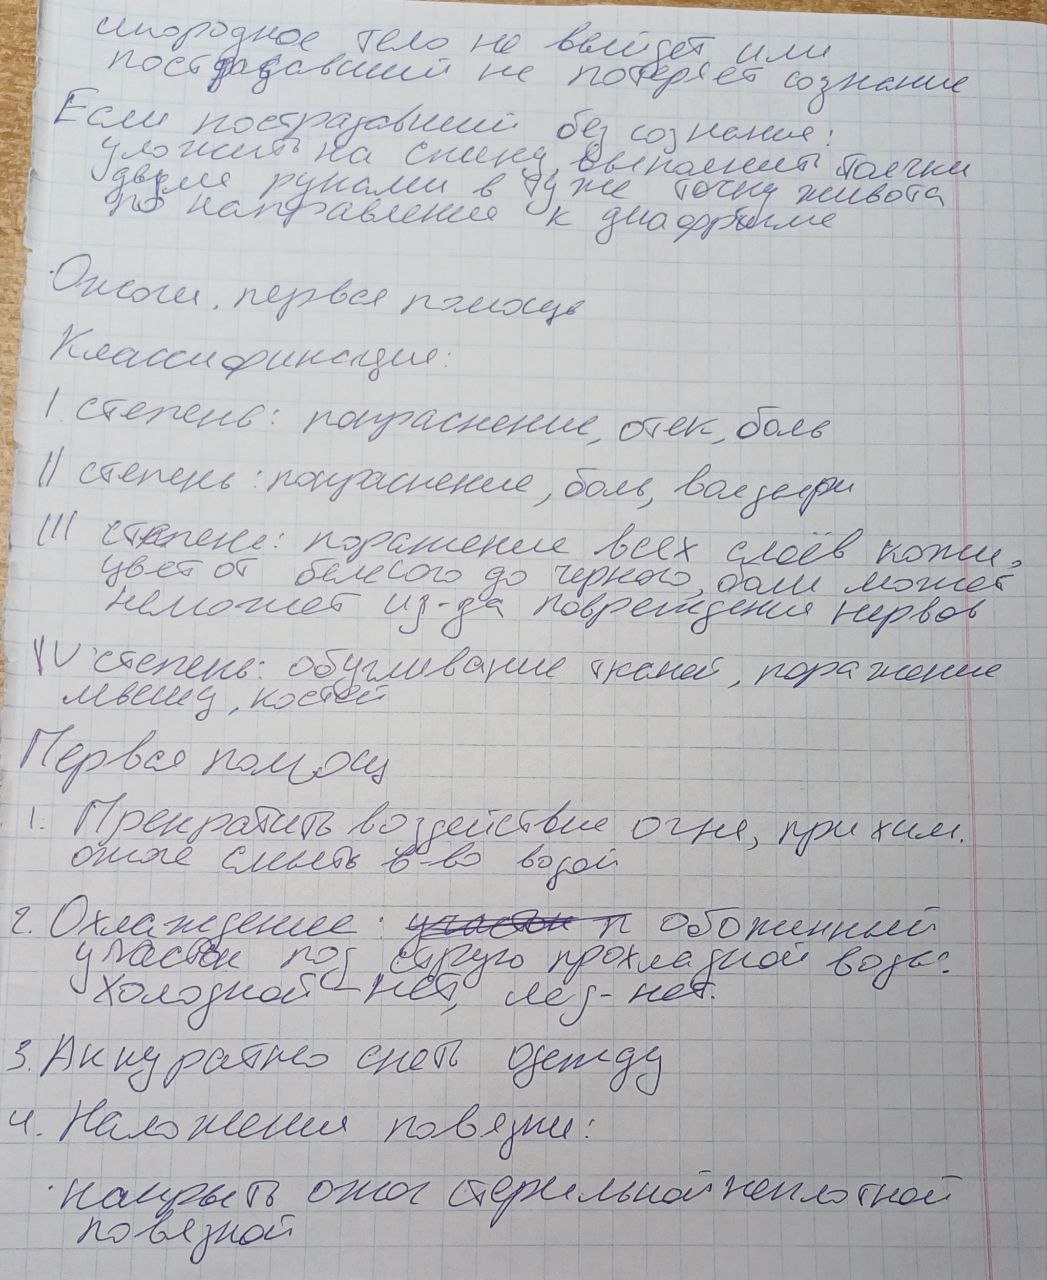 инородное тело не выйдет или
пострадавший не потеряет сознание
Если пострадавший без сознания:
уложить на спину, выполнить толчки
двумя руками в ту же точку живота
по направления к диафрагме
Ожоги, первая помощь
Классификация:
I степень: покраснение, отек, боль
II степень: покраснение, боль, волдыри
III степень: поражение всех слоёв кожи,
цвет от белесого до черного, боли может
не может из-за повреждения нервов
IV степень: обугливание тканей, поражение
мышц, костей
Первая помощ
1. Прекратить воздействие огня, при хим.
ожоге смыть в-во водой
2. Охлаждение: участок п обоженный
участок под струю прохладной воды.
Холодной - нет, лёд - нет.
3. Аккуратно снеть одежду
4. Наложения повязки:
· накрыть ожог стерильной неплотной
повязкой